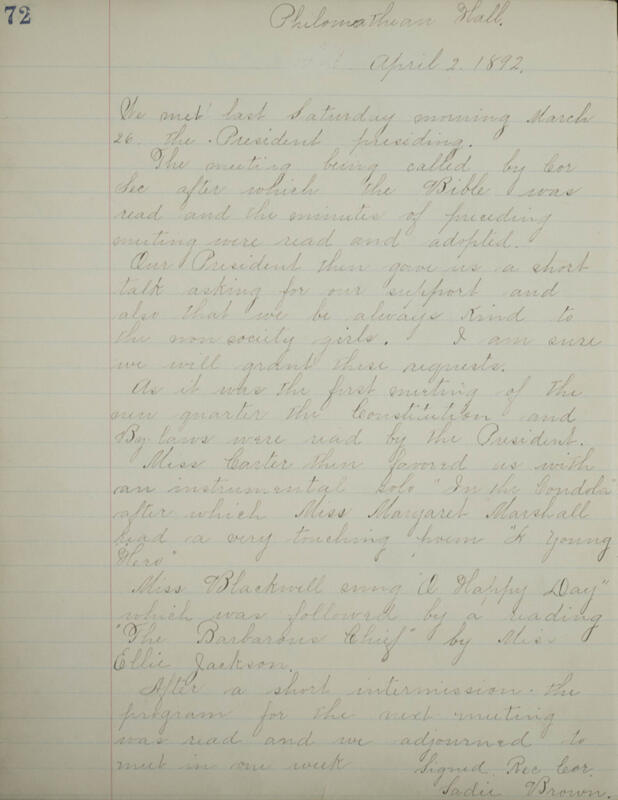 72
Philomathean Hall.
April 2. 1892.
We met last Saturday morning March
26. the President presiding.
The meeting being called by Cor
Sec after which the Bible was
read and the minutes of preceding
meeting were read and adopted.
Our President then gave us a short
talk asking for our support and
also that we be always kind to
the non society girls. I am sure
we will grant these requests.
As it was the first meeting of the
new quarter the Constitution and
By laws were read by the President.
Miss Carter then favored us with
an instrumental solo "In the Gondola"
after which Miss Margaret Marshall
read a very touching poem "A Young
Hero"
Miss Blackwell sung "O Happy Day"
which was followed by a reading
"The Barbarous Chief" by Miss
Ellie Jackson.
After a short intermission the
program for the next meeting
was read and we adjourned to
meet in one week Signed Rec Cor.
Sadie Brown.